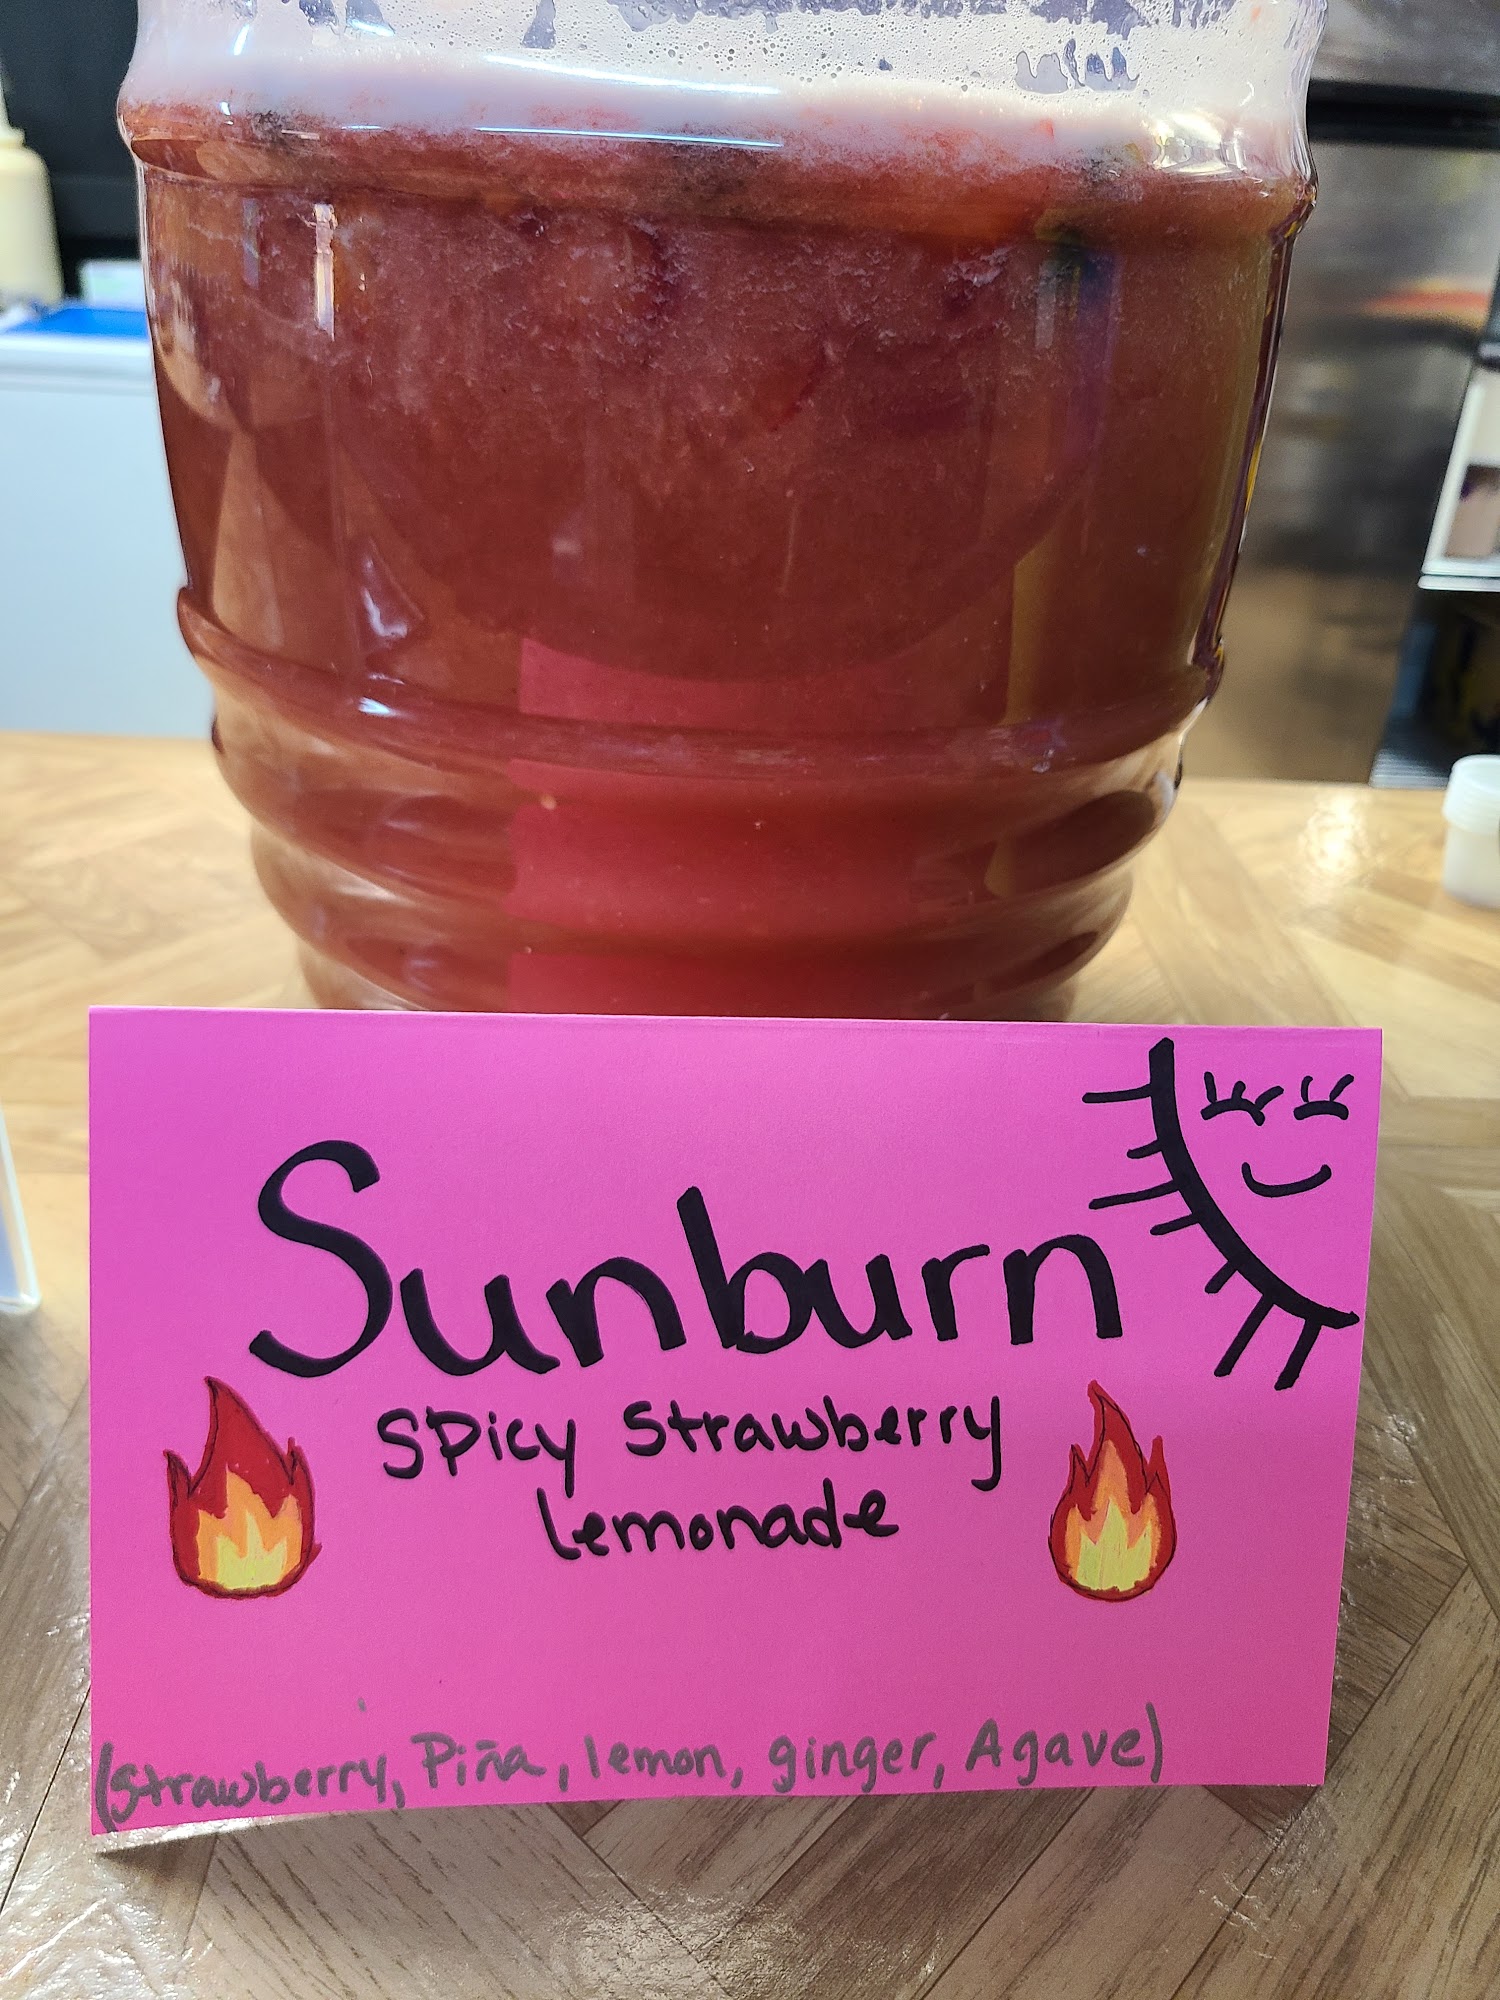 Sunburn
Spicy Strawberry
lemonade
(Strawberry, Piña, lemon, ginger, Agave)